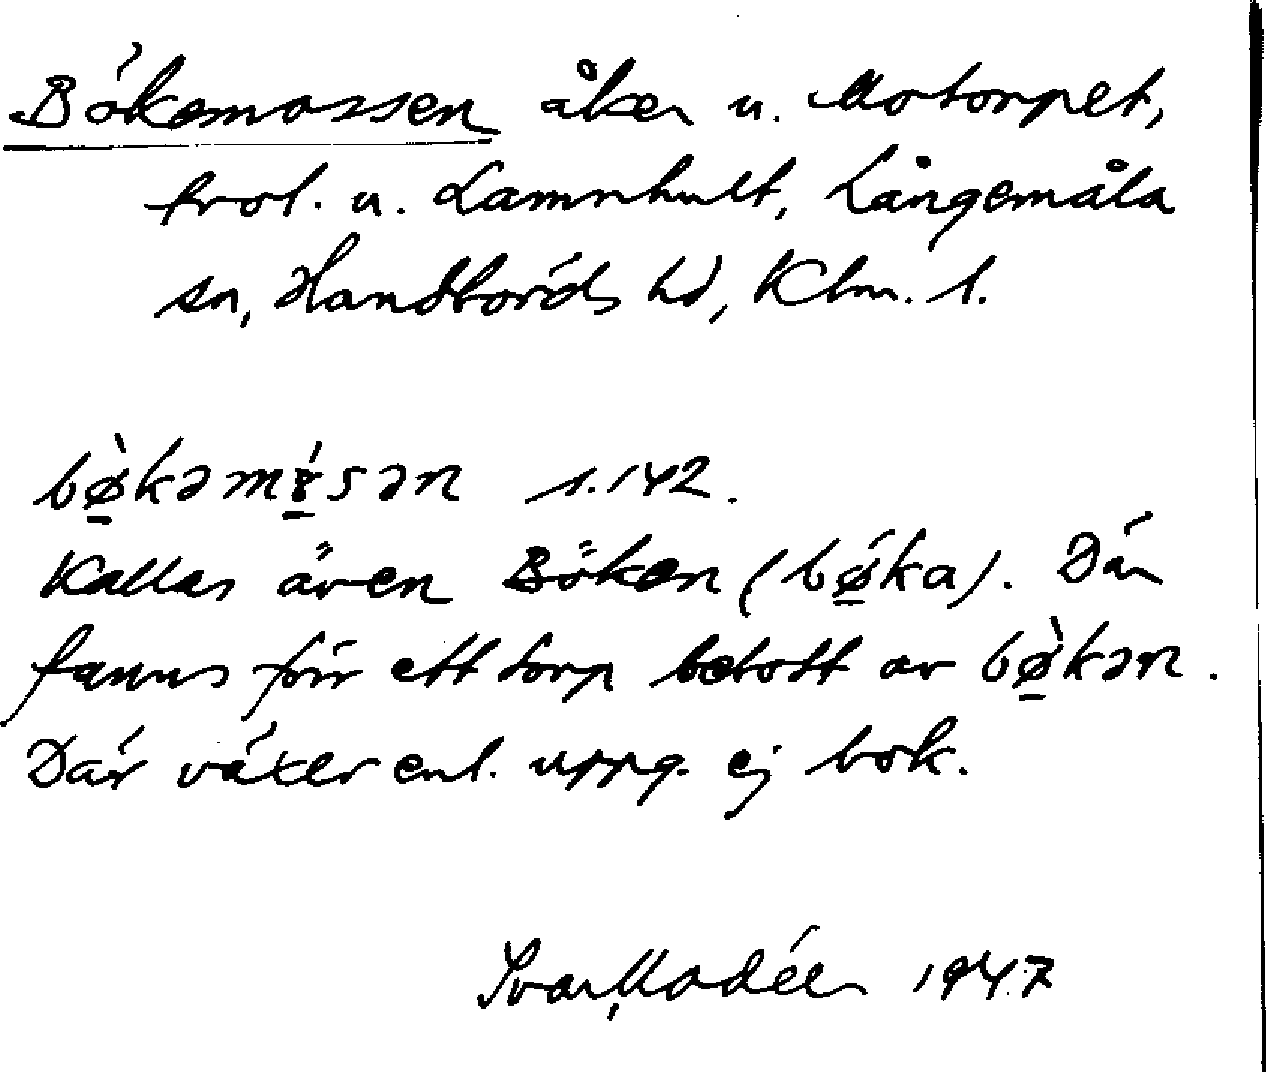 Bökemossen åker u. Motorpet,
trol. u. Lamnhult, Långemåla
sn, Handbörds hd, Klm. l.
bø̀kəmɤ́sən s. 142.
Kallas även Böken (bǿka). Där
fanns förr ett torp bebott av bø̀kən.
Där växer enl. uppg. ej bok.
Ivar Modéer 1947